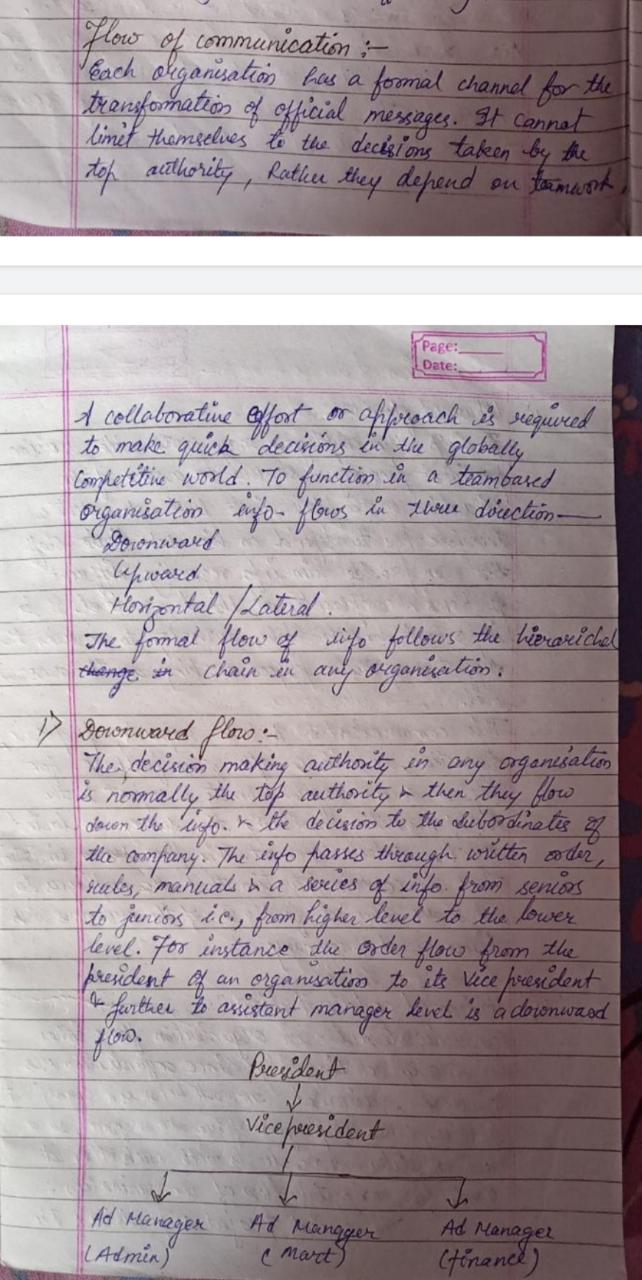 Flow of communication :-
Each organisation has a formal channel for the
transformation of official messages. It cannot
limit themselves to the decisions taken by the
top authority, Rather they depend on teamwork.
Page:
Date:
A collaborative effort or approach is required
to make quick decisions in the globally
Competitive world. To function in a teambased
organisation info- flows in three direction—
Downward
Upward
Horizontal / Lateral.
The formal flow of info follows the hierarichel
change in chain in any organisation.
1) Downward flow:-
The decision making authority in any organisation
is normally the top authority & then they flow
down the info. & the decision to the subordinates of
the company. The info passes through written order,
rules, manuals & a series of info. from seniors
to juniors i.e., from higher level to the lower
level. For instance the order flow from the
president of an organisation to its vice president
& further to assistant manager level is a downward
flow.
President
Vice president
Ad Manager Ad Manager Ad Manager
(Admin) (Mart) (finance)